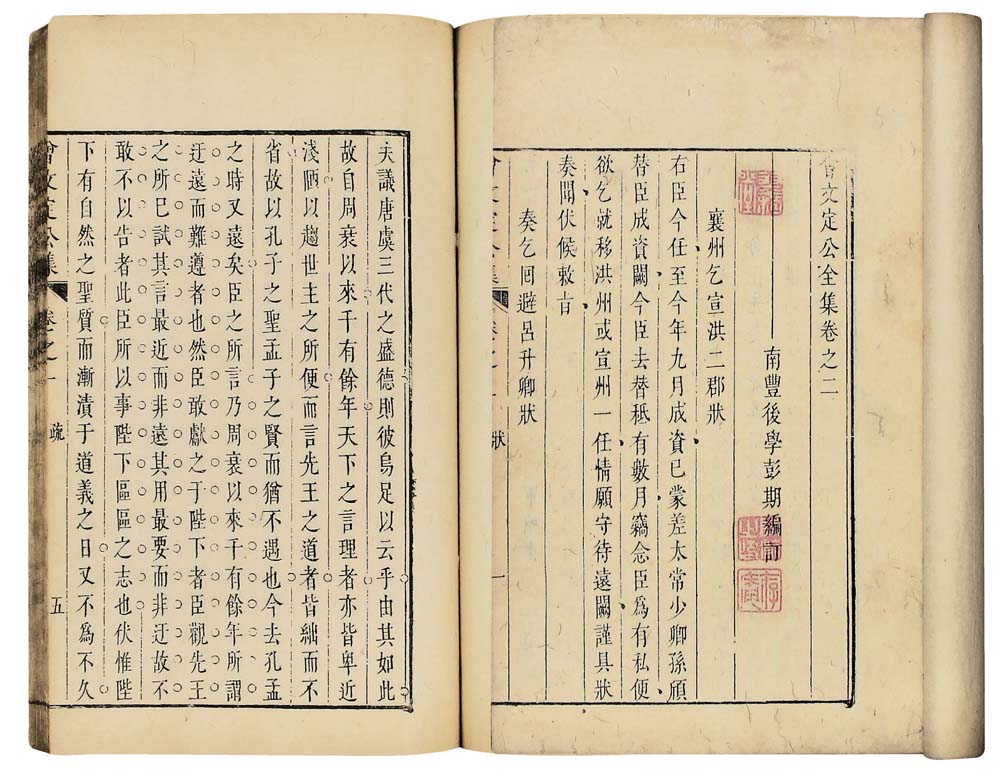 曾文定公全集卷之二
南豐後學彭期編訂
襄州乞宣洪二郡狀
右臣今任至今年九月成資已蒙差太常少卿孫頎
替臣成資闕今臣去替秪有數月竊念臣爲有私便
欲乞就移洪州或宣州一任情願守待遠闕謹具狀
奏聞伏候敕旨
奏乞囘避呂升卿狀
曾文定公集 卷之 狀 一
夫議唐虞三代之盛德則彼烏足以云乎由其如此
故自周衰以來千有餘年天下之言理者亦皆卑近
淺陋以趨世主之所便而言先王之道者皆絀而不
省故以孔子之聖孟子之賢而猶不遇也今去孔孟
之時又遠矣臣之所言乃周衰以來千有餘年所謂
迂遠而難遵者也然臣敢獻之于陛下者臣觀先王
之所已試其言最近而非遠其用最要而非迂故不
敢不以告者此臣所以事陛下區區之志也伏惟陛
下有自然之聖質而漸漬于道義之日又不爲不久
曾文定公集 卷之一 疏 五